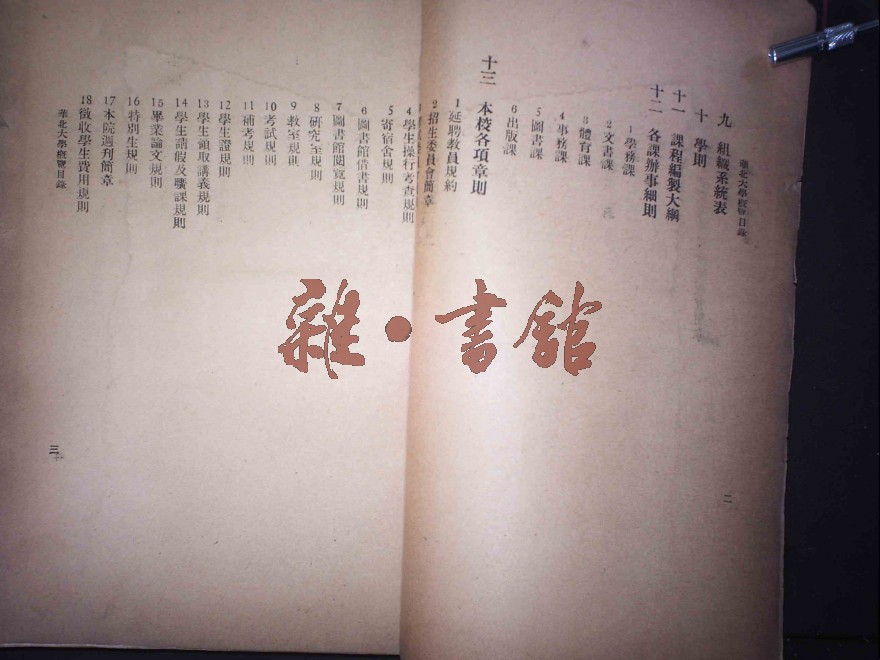 華北大學概覽目錄
九 組織系統表
十 學則
十一 課程編製大綱
十二 各課辦事細則
1 學務課
2 文書課
3 體育課
4 事務課
5 圖書課
6 出版課
十三 本校各項章則
1 延聘教員規約
2 招生委員會簡章
二
4 學生操行考查規則
5 寄宿舍規則
6 圖書館借書規則
7 圖書館閱覽規則
8 研究室規則
9 教室規則
10 考試規則
11 補考規則
12 學生證規則
13 學生領取講義規則
14 學生請假及曠課規則
15 畢業論文規則
16 特別生規則
17 本院週刊簡章
18 徵收學生費用規則
華北大學概覽目錄
三
雜·書館